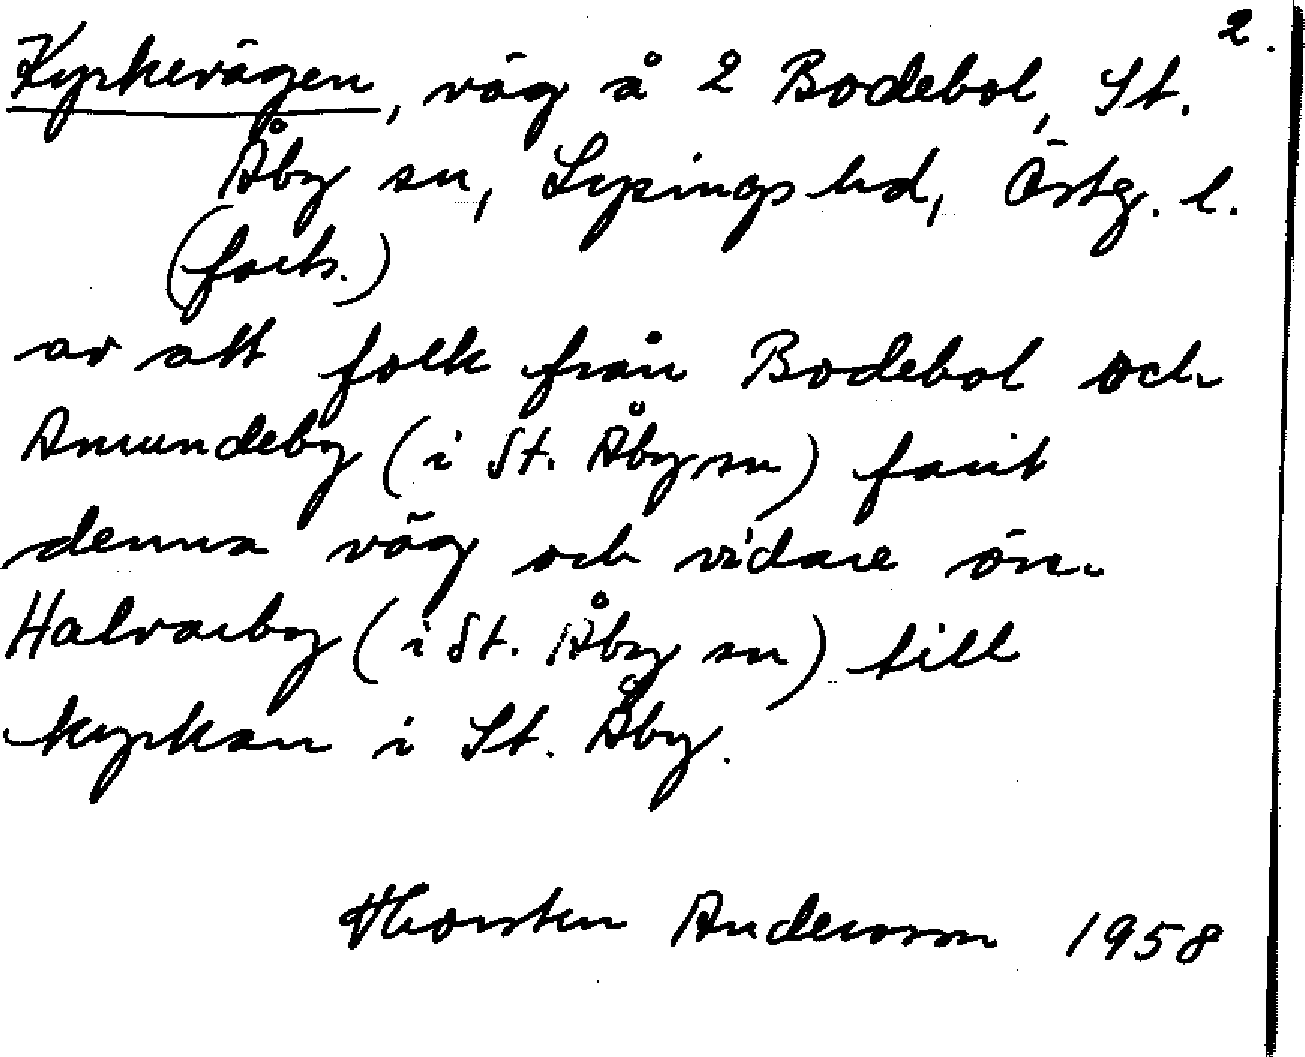 2.
Kyrkevägen, väg å 2 Bodebol, St.
Åby sn, Lysings hd, Östg. l.
(forts.)
av att folk från Bodebol och
Amundeby (i St. Åby sn) farit
denna väg och vidare öv.
Halvarby (i St. Åby sn) till
kyrkan i St. Åby.
Thorsten Andersson 1958